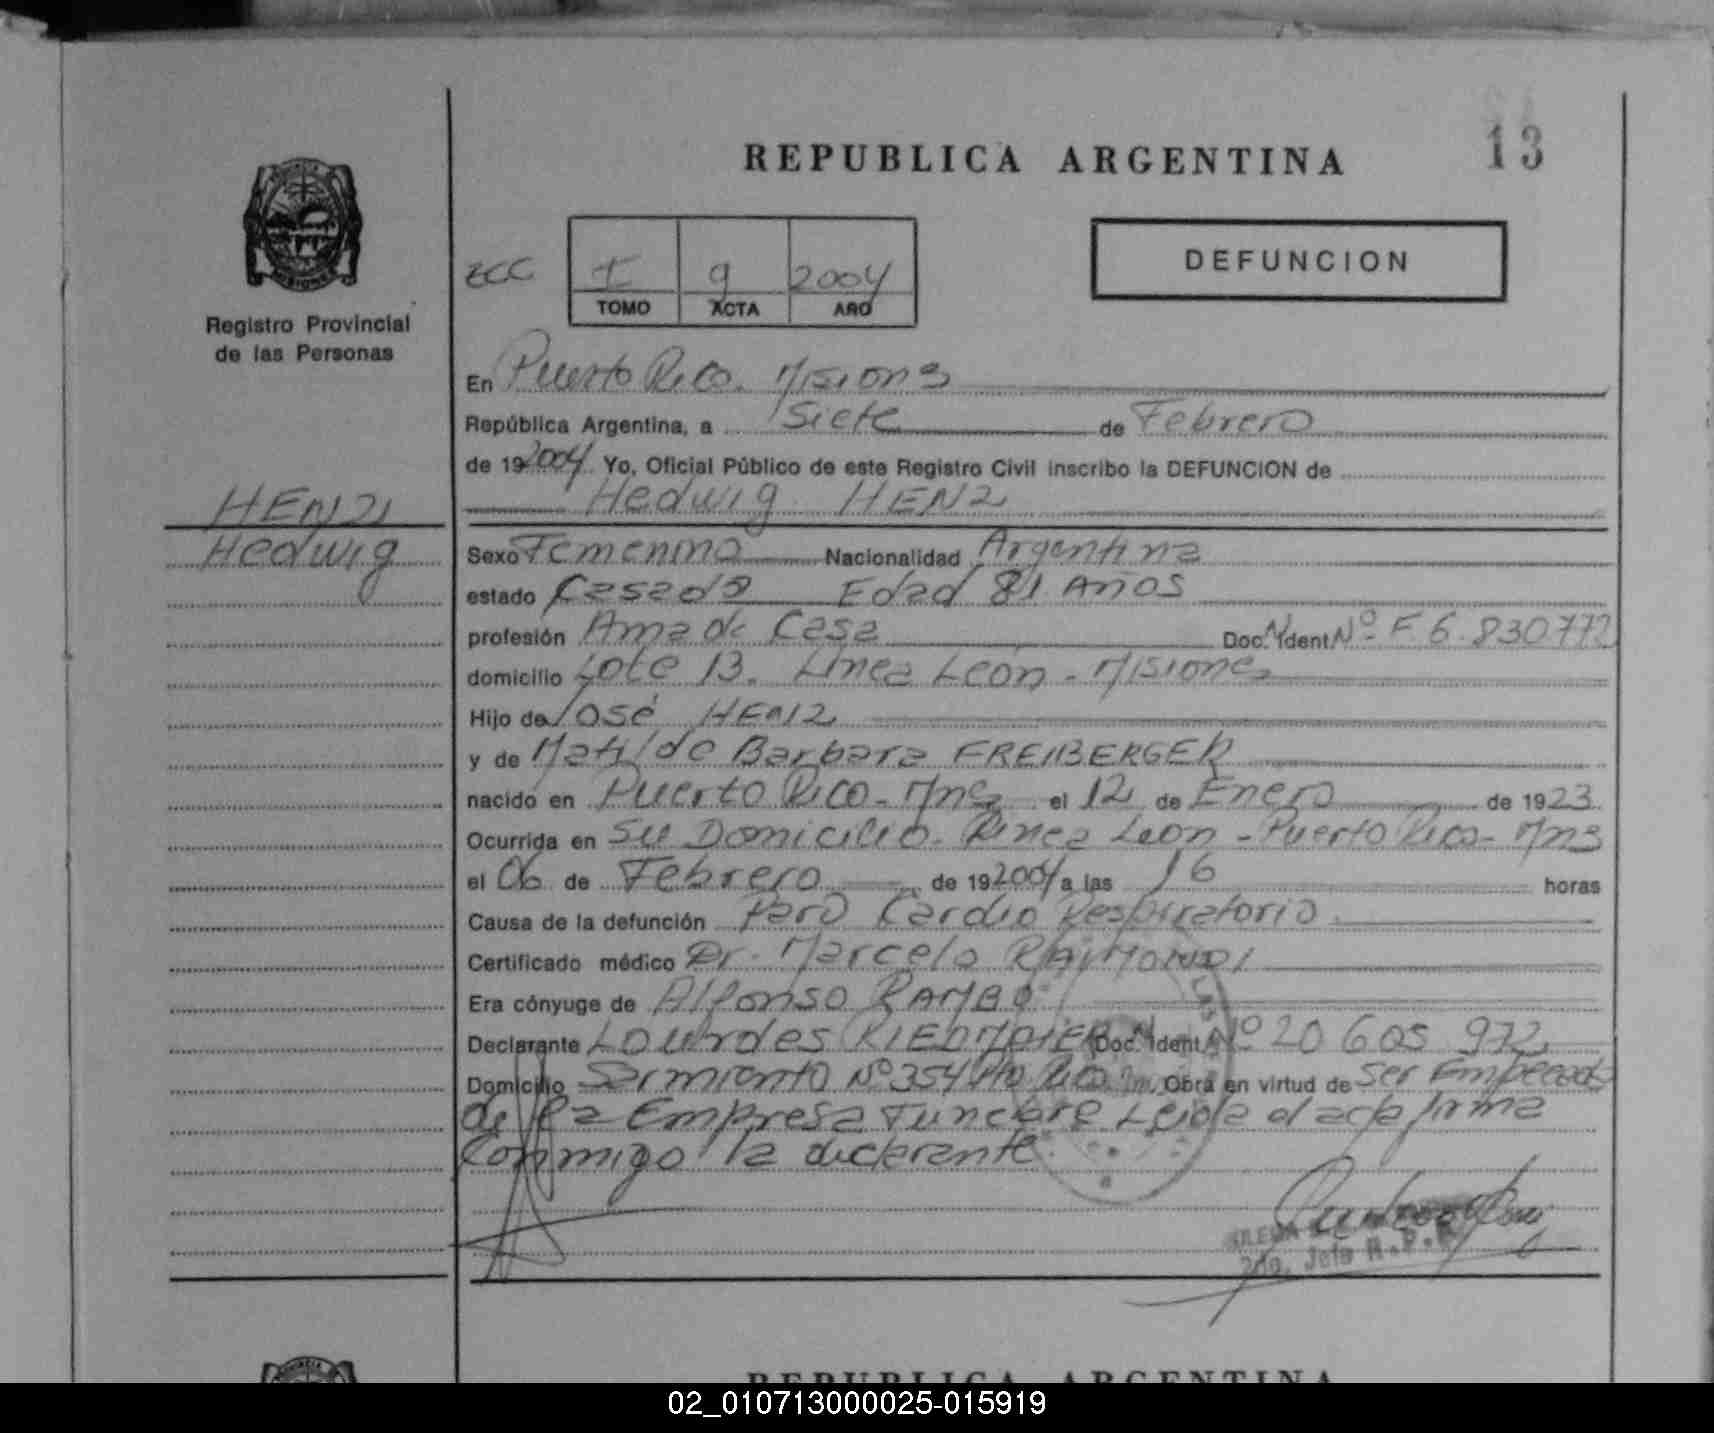 REPUBLICA ARGENTINA
13
DEFUNCION
I 9 2004
TOMO ACTA AÑO
Registro Provincial
de las Personas
En Puerto Rico. Misiones
República Argentina, a Siete de Febrero
de 192004 Yo, Oficial Público de este Registro Civil inscribo la DEFUNCION de
Hedwig HENZ
HENZ
Hedwig
Sexo Femenino Nacionalidad Argentina
estado Casada Edad 81 Años
profesión Ama de Casa Doc. N. Ident Nº F 6.830772
domicilio Lote 13. Linea León - Misiones
Hijo de José HENZ
y de Matilde Barbara FREIBERGER
nacido en Puerto Rico - Mnes el 12 de Enero de 1923
Ocurrida en Su Domicilio. Linea León - Puerto Rico - Mns
el 06 de Febrero de 192004 a las 16 horas
Causa de la defunción Paro Cardio Respiratorio
Certificado médico Dr. Marcelo RAIMONDI
Era cónyuge de Alfonso RAMBO
Declarante Lourdes RIEDMAIER Doc. N. Ident Nº 20 605 972
Domicilio Sarmiento Nº 354 Pto Rico Obra en virtud de Ser Empleada
de la Empresa Funebre Leida el acta firma
conmigo la declarante
2da. Jefa R.P.
REPUBLICA ARGENTINA
02_010713000025-015919